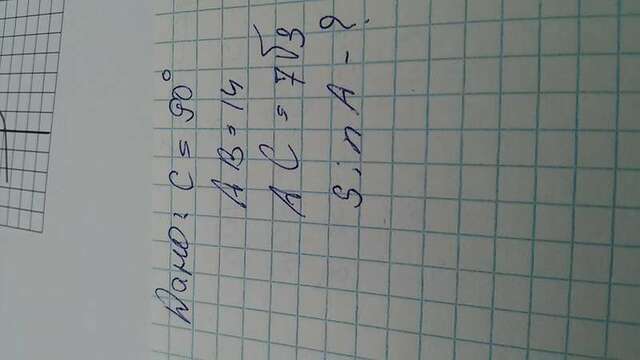 Дано: C = 90°
AB = 14
AC = 7√3
SinA - ?